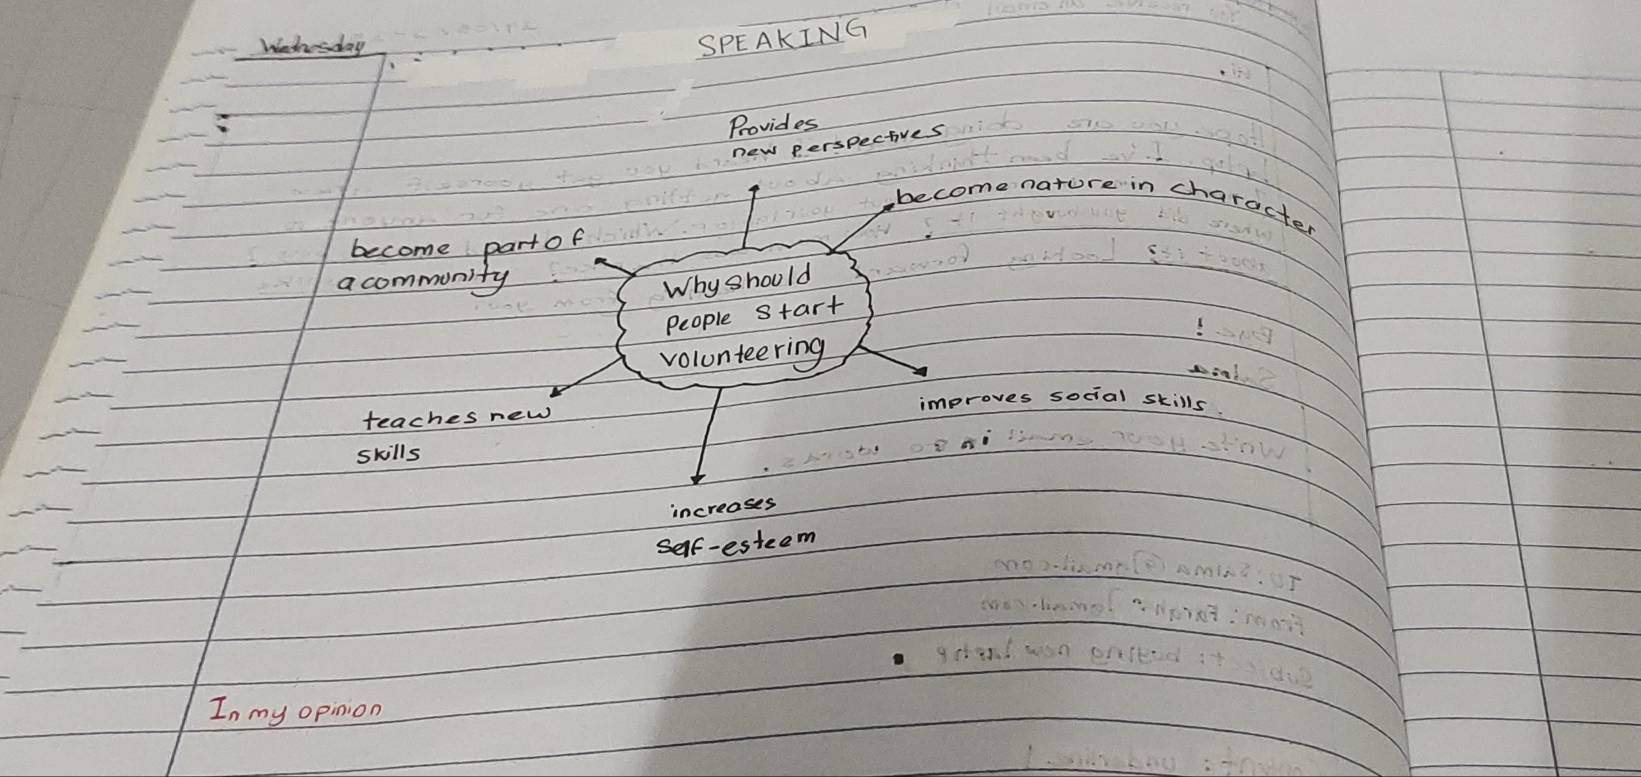 Wednesday
SPEAKING
Provides
new perspectives
become nature in character
become part of
a community
Why should
people start
volunteering
teaches new
skills
improves social skills.
increases
self-esteem
In my opinion